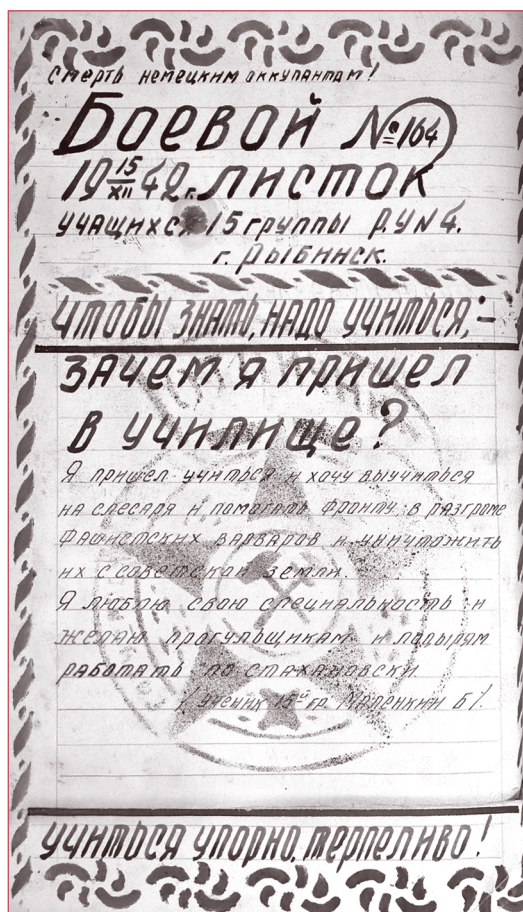 Смерть немецким оккупантам!
Боевой №164
19 15/XII 42 г. листок
учащихся 15 группы Р.У №4.
г. Рыбинск.
Чтобы знать, надо учиться,:–
Зачем я пришел
в училище?
Я пришел учиться и хочу выучиться
на слесаря и помогать фронту в разгроме
фашистских варваров и уничтожить
их с советской земли.
Я люблю свою специальность и
желаю прогульщикам и лодырям
работать по стахановски
/ Ученик 15ой гр. Маленкин Б/.
Учиться упорно, терпеливо!